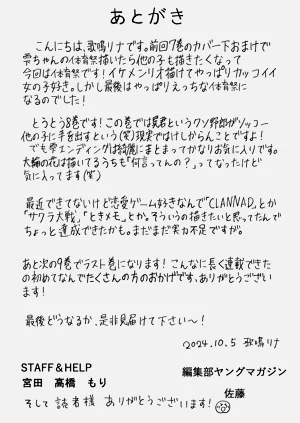 あとがき
こんにちは、歌鳴リナです。前回7巻のカバー下おまけで
雫ちゃんの体育祭描いたら他の子も描きたくなって
今回は体育祭です！イケメンリオ描けてやっぱりカッコイイ
女の子好き。しかし最後はやっぱりえっちな体育祭に
なるのでした！
とうとう8巻です！この巻では眞君というクソ野郎がソッコー
他の子に手を出すという(笑)現実ではけしからんことですよ！
でも雫エンディングは綺麗にまとまってかなりお気に入りです。
大輪の花は描いてるうちも「何言ってんの？」ってなったけど
気に入ってます(笑)
最近できてないけど恋愛ゲーム好きなんで「CLANNAD」とか
「サクラ大戦」「ときメモ」とか。そういうの描きたいと思ってたんで
ちょっと達成できたかも。まだまだ実力不足ですが。
あと次の9巻でラスト巻になります！こんなに長く連載できた
の初めてなんでたくさんの方のおかげです、ありがとうござい
ます！
最後どうなるか、是非見届けて下さい〜！
2024.10.5 歌鳴リナ
STAFF＆HELP
宮田 高橋 もり
編集部ヤングマガジン
佐藤
そして読者様 ありがとうございます！